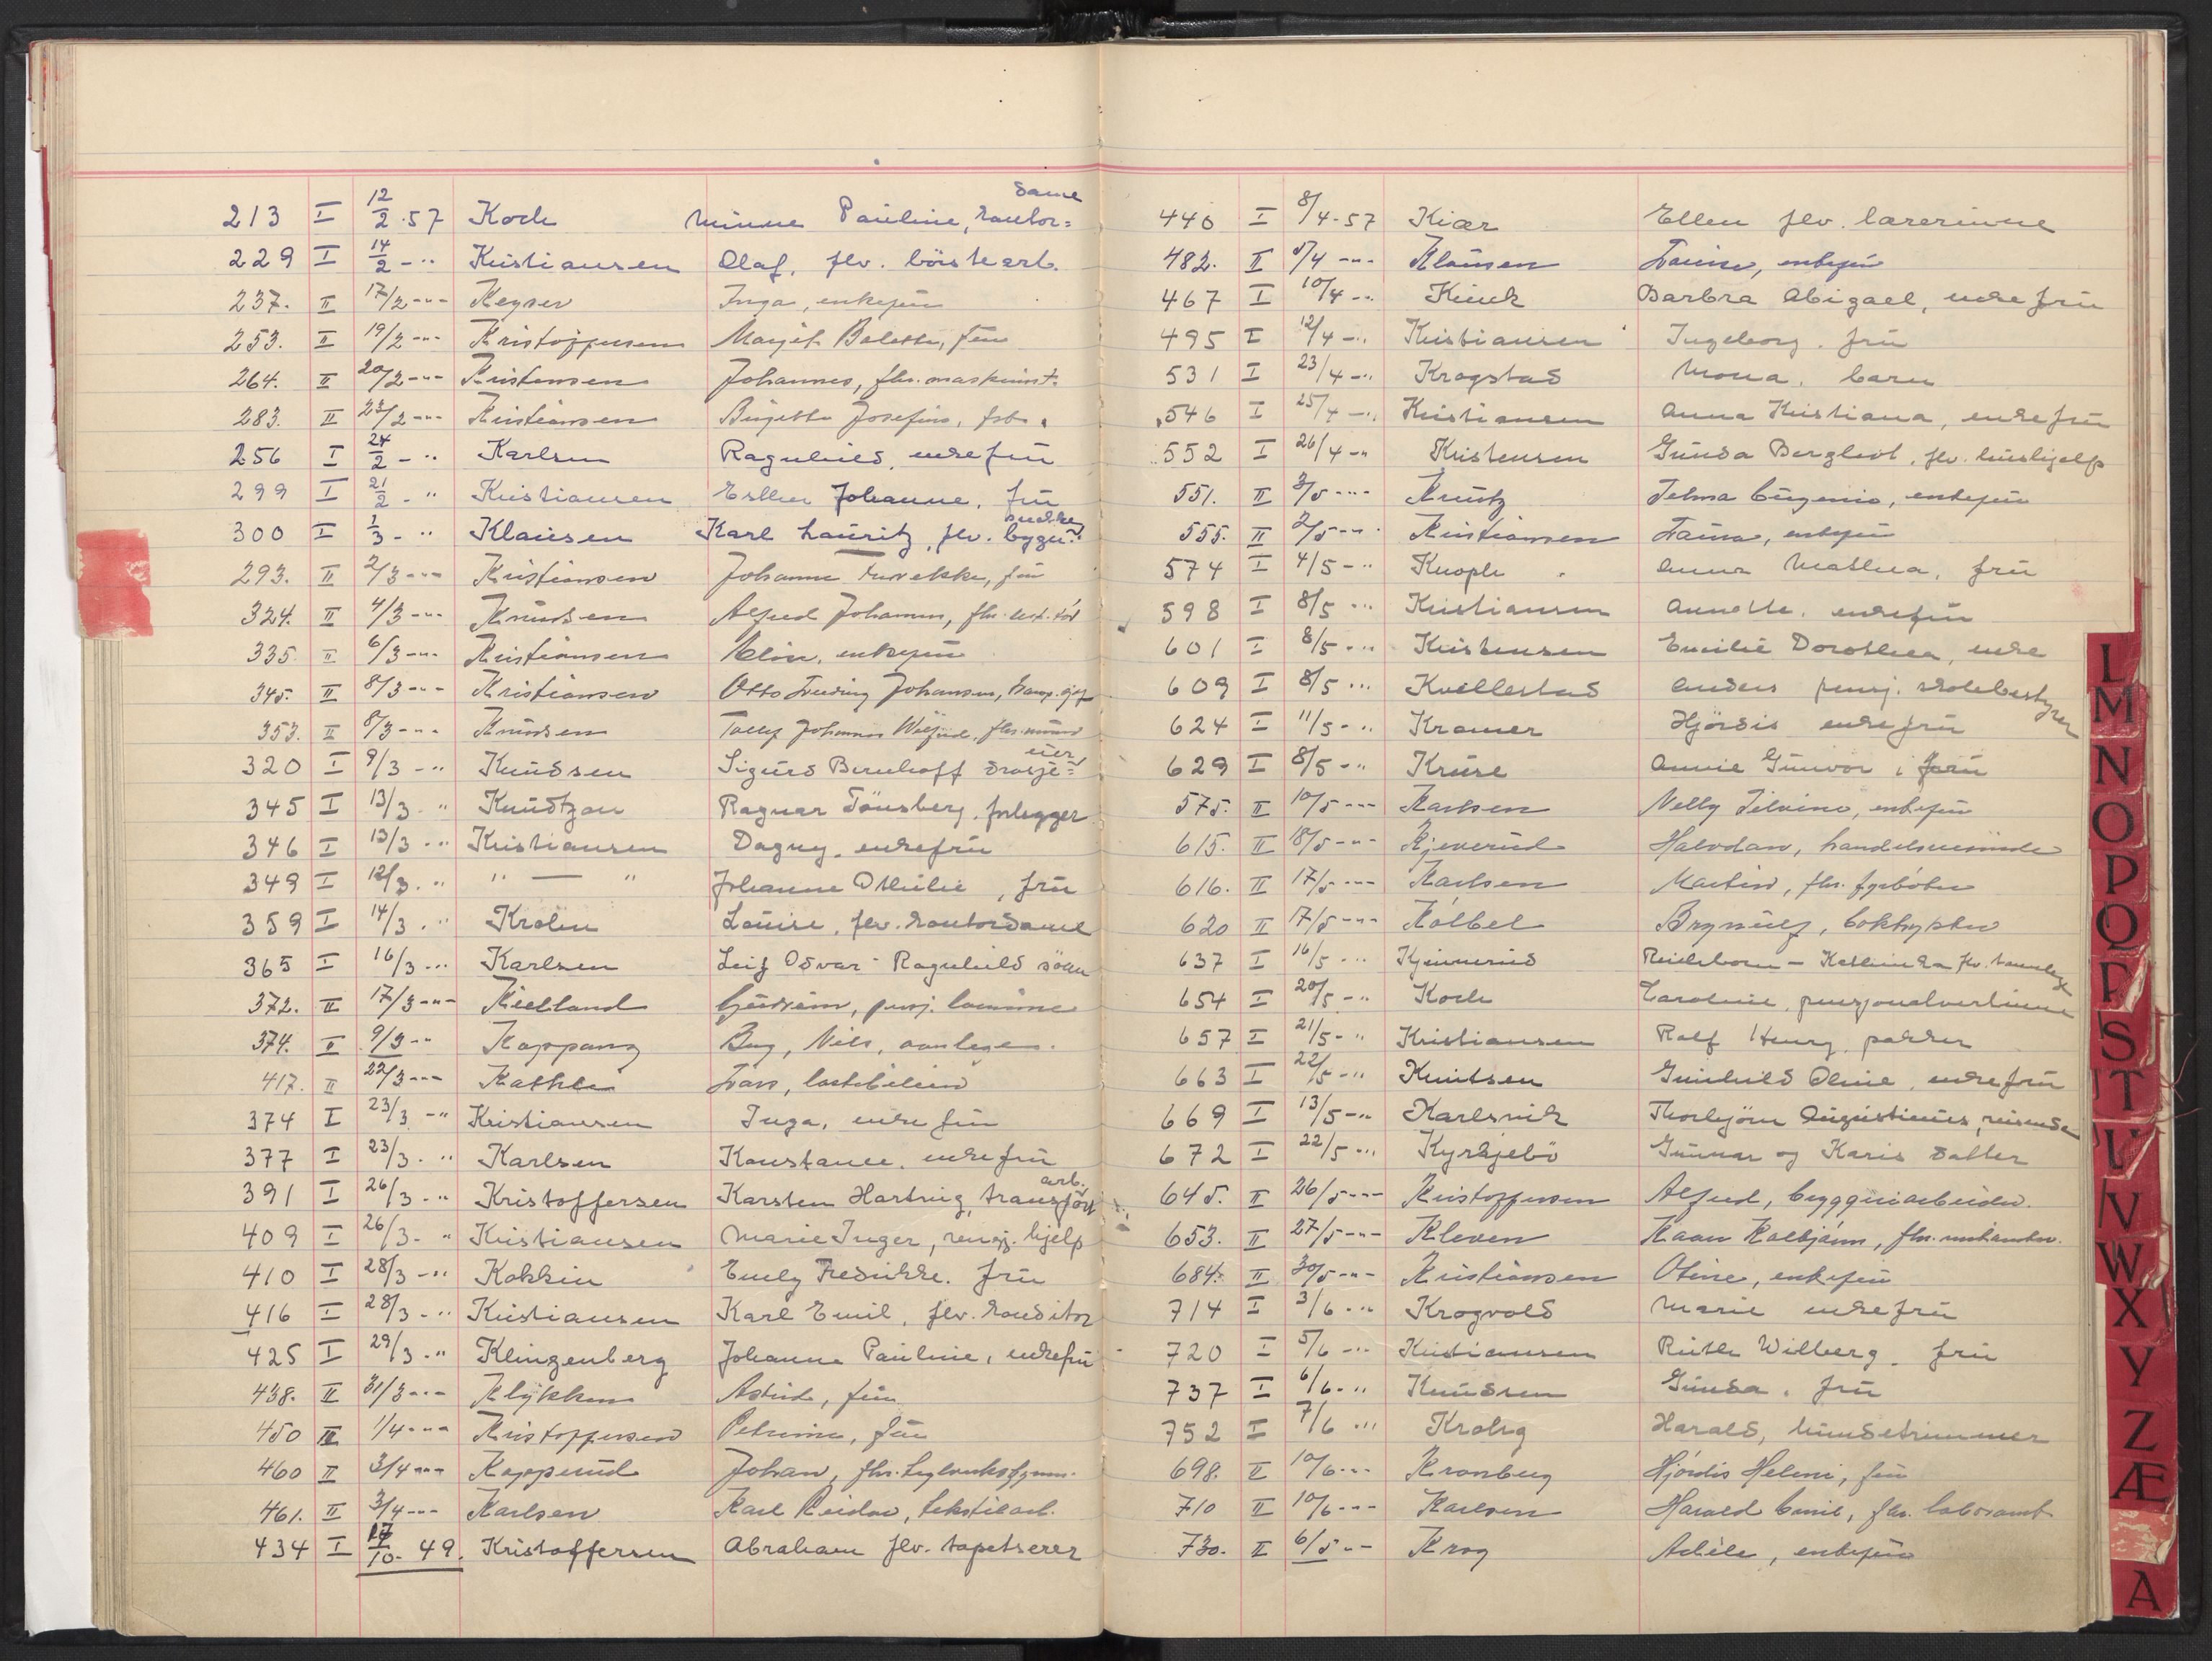 213 I 12/2-57 Koch Minne Pauline, kontor= dame
229 I 14/2 -" Kristiansen Olaf, flv. börstearb.
237. II 17/2 -"- Keyser Inga, enkefru
253. II 19/2 -"- Kristoffersen Margit Bolette, fru
264. II 20/2 -"- Kristensen Johannes, fhv. maskinist.
283. II 23/2 -"- Kristiansen Birgitte Josefine, frk.
256 I 24/2 -" Karlsen Ragnhild, enkefru
299 I 21/2 -" Kristiansen Esther Johanne, fru
300 I 1/3 -" Klausen Karl Lauritz, flv. bygn.snekker
293. II 2/3 -"- Kristiansen Johanne, fru
324. II 4/3 -"- Knudsen Alfred Johannes, fhv.
335. II 6/3 -"- Kristiansen Elin, enkefru
345. II 8/3 -"- Kristiansen Otto Ludvig Johansen,
353. II 8/3 -"- Knudsen Johannes fhv.
320 I 9/3 -" Knudsen Sigurd Bernhoff drosje=eier
345 I 13/3 -" Knudtzon Ragnar Tönsberg, forlegger
346 I 13/3 -" Kristiansen Dagny, enkefru
349 I 12/3 -" " — " Johanne Othilie, fru
359 I 14/3 -" Krohn Louise, flv. kontordame
365 I 16/3 -" Karlsen Leif Osvar - Ragnhilds sönn
372. II 17/3 -"- Kielland Gudrun, pensj. lærerinne
374. II 9/3 -" Koppang Nils,
417. II 22/3 -"- Kathle Lars, lastebileier
374 I 23/3 -" Kristiansen Inga, enkefru
377 I 23/3 -" Karlsen Konstance, enkefru
391 I 26/3 -" Kristoffersen Karsten Hartvig, transport arb.
409 I 26/3 -" Kristiansen Marie Inger, rengj. hjelp
410 I 28/3 -" Kokkin Emely Fredrikke. fru
416 I 28/3 -" Kristiansen Karl Emil, flv. konditor
425 I 29/3 -" Klingenberg Johanne Pauline, enkefru
438. II 31/3 -"- Klykken Astrid, fru
450 II 1/4 -"- Kristoffersen Petrine, fru
460 II 3/4 -"- Kopperud Johan, fhv.
461. II 3/4 -"- Karlsen Karl Reidar, tekstilarb.
434 I 17/10-49. Kristoffersen Abraham flv. tapetserer
440 I 8/4-57 Kiær Ellen flv. lærerinne
482. II 5/4 -"- Klausen enkefru
467 I 10/4 -" Kinck Barbra Abigael, enkefru
495 I 12/4 -" Kristiansen Ingeborg. fru
531 I 23/4 -" Krogstad Mona. barn
546 I 25/4 -" Kristiansen Anna Kristiana, enkefru
552 I 26/4 -" Kristensen Gunda Bergliot, flv. hushjelp
551. II 3/5 -"- Kruntz Selma Eugenie, enkefru
555. II 2/5 -"- Kristiansen Laura, enkefru
574 I 4/5 -" Knoph Anna Mathea, fru
598 I 8/5 -" Kristiansen Annette. enkefru
601 I 8/5 -" Kristensen Emilie Dorothea, enke
609 I 8/5 -" Kvellestad Anders pensj. skolebestyrer
624 I 11/5 -" Kramer Hjördis enkefru
629 I 8/5 -" Kruse Annie Gunvor, fru
575. II 10/5 -"- Karlsen Nelly Silvine, enkefru
615. II 18/5 -"- Kjeverud Halvdan, handelsreisende
616. II 17/5 -"- Karlsen Martin, fhv. fyrböter
620 II 17/5 -"- Kölbel Brynulf, boktrykker
637 I 16/5 -" Kjennerud Reichborn - Kathinka flv. tannlege
654 I 20/5 -" Koch Caroline. pensjonatvertinne
657 I 21/5 -" Kristiansen Rolf Henry. pakker
663 I 22/5 -" Knutsen Gunhild Oline, enkefru
669 I 13/5 -" Karlsvik Thorbjörn Augustinus, reisende
672 I 22/5 -" Kyrkjebö Gunnar og Karis datter
645. II 26/5 -"- Kristoffersen Alfred, bryggeriarbeider.
653. II 27/5 -"- Kleven Kaare Kolbjörn, fhv.
684. II 30/5 -"- Kristiansen Otine, enkefru
714 I 3/6 -" Krogvold Marie enkefru
720 I 5/6 -" Kristiansen Ruth Wilberg. fru
737 I 6/6 -" Knudsen Gunda. fru
752 I 7/6 -" Krohg Harald, hundetrimmer
698. II 10/6 -"- Kronberg Hjördis Helene, fru
710 II 10/6 -"- Karlsen Harald Emil, fhv. laborant
730. II 6/5 -"- Krog Adèle, enkefru
L
M
N
O
P
Q
R
S
T
U
V
W
X
Y
Z
Æ
A